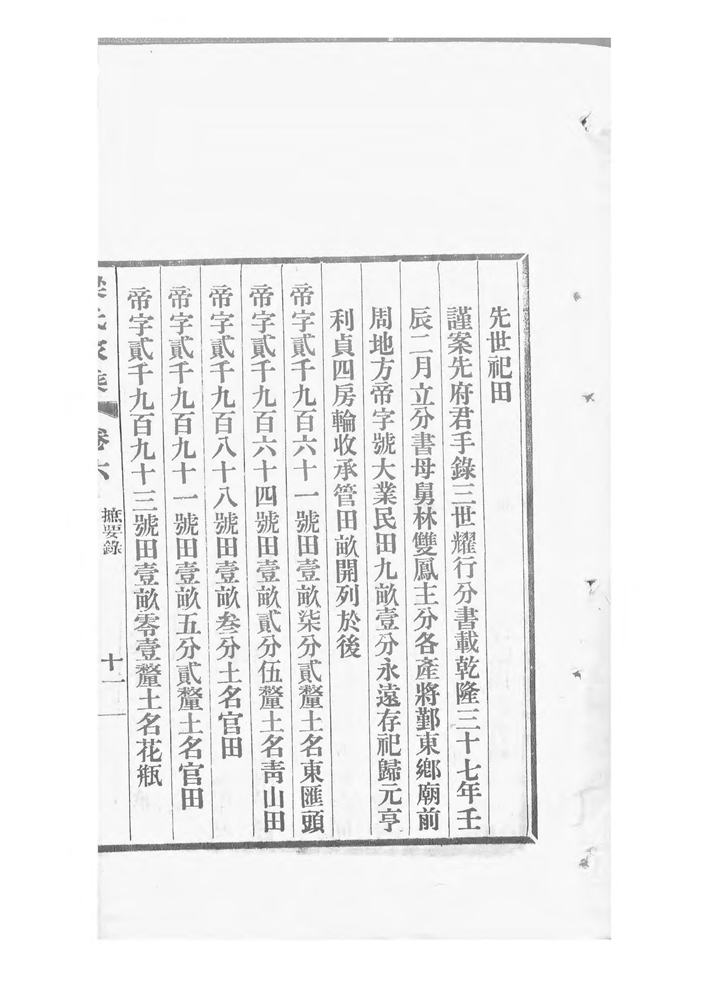 先世祀田
謹案先府君手錄三世耀行分書載乾隆三十七年壬
辰二月立分書母舅林雙鳳主分各產將鄞東鄉廟前
周地方帝字號大業民田九畝壹分永遠存祀歸元亨
利貞四房輪收承管田畝開列於後
帝字貳千九百六十一號田壹畝柒分貳釐土名東匯頭
帝字貳千九百六十四號田壹畝貳分伍釐土名靑山田
帝字貳千九百八十八號田壹畝叁分土名官田
帝字貳千九百九十一號田壹畝五分貳釐土名官田
帝字貳千九百九十三號田壹畝零壹釐土名花瓶
氏家集 卷六 摭要錄 十一